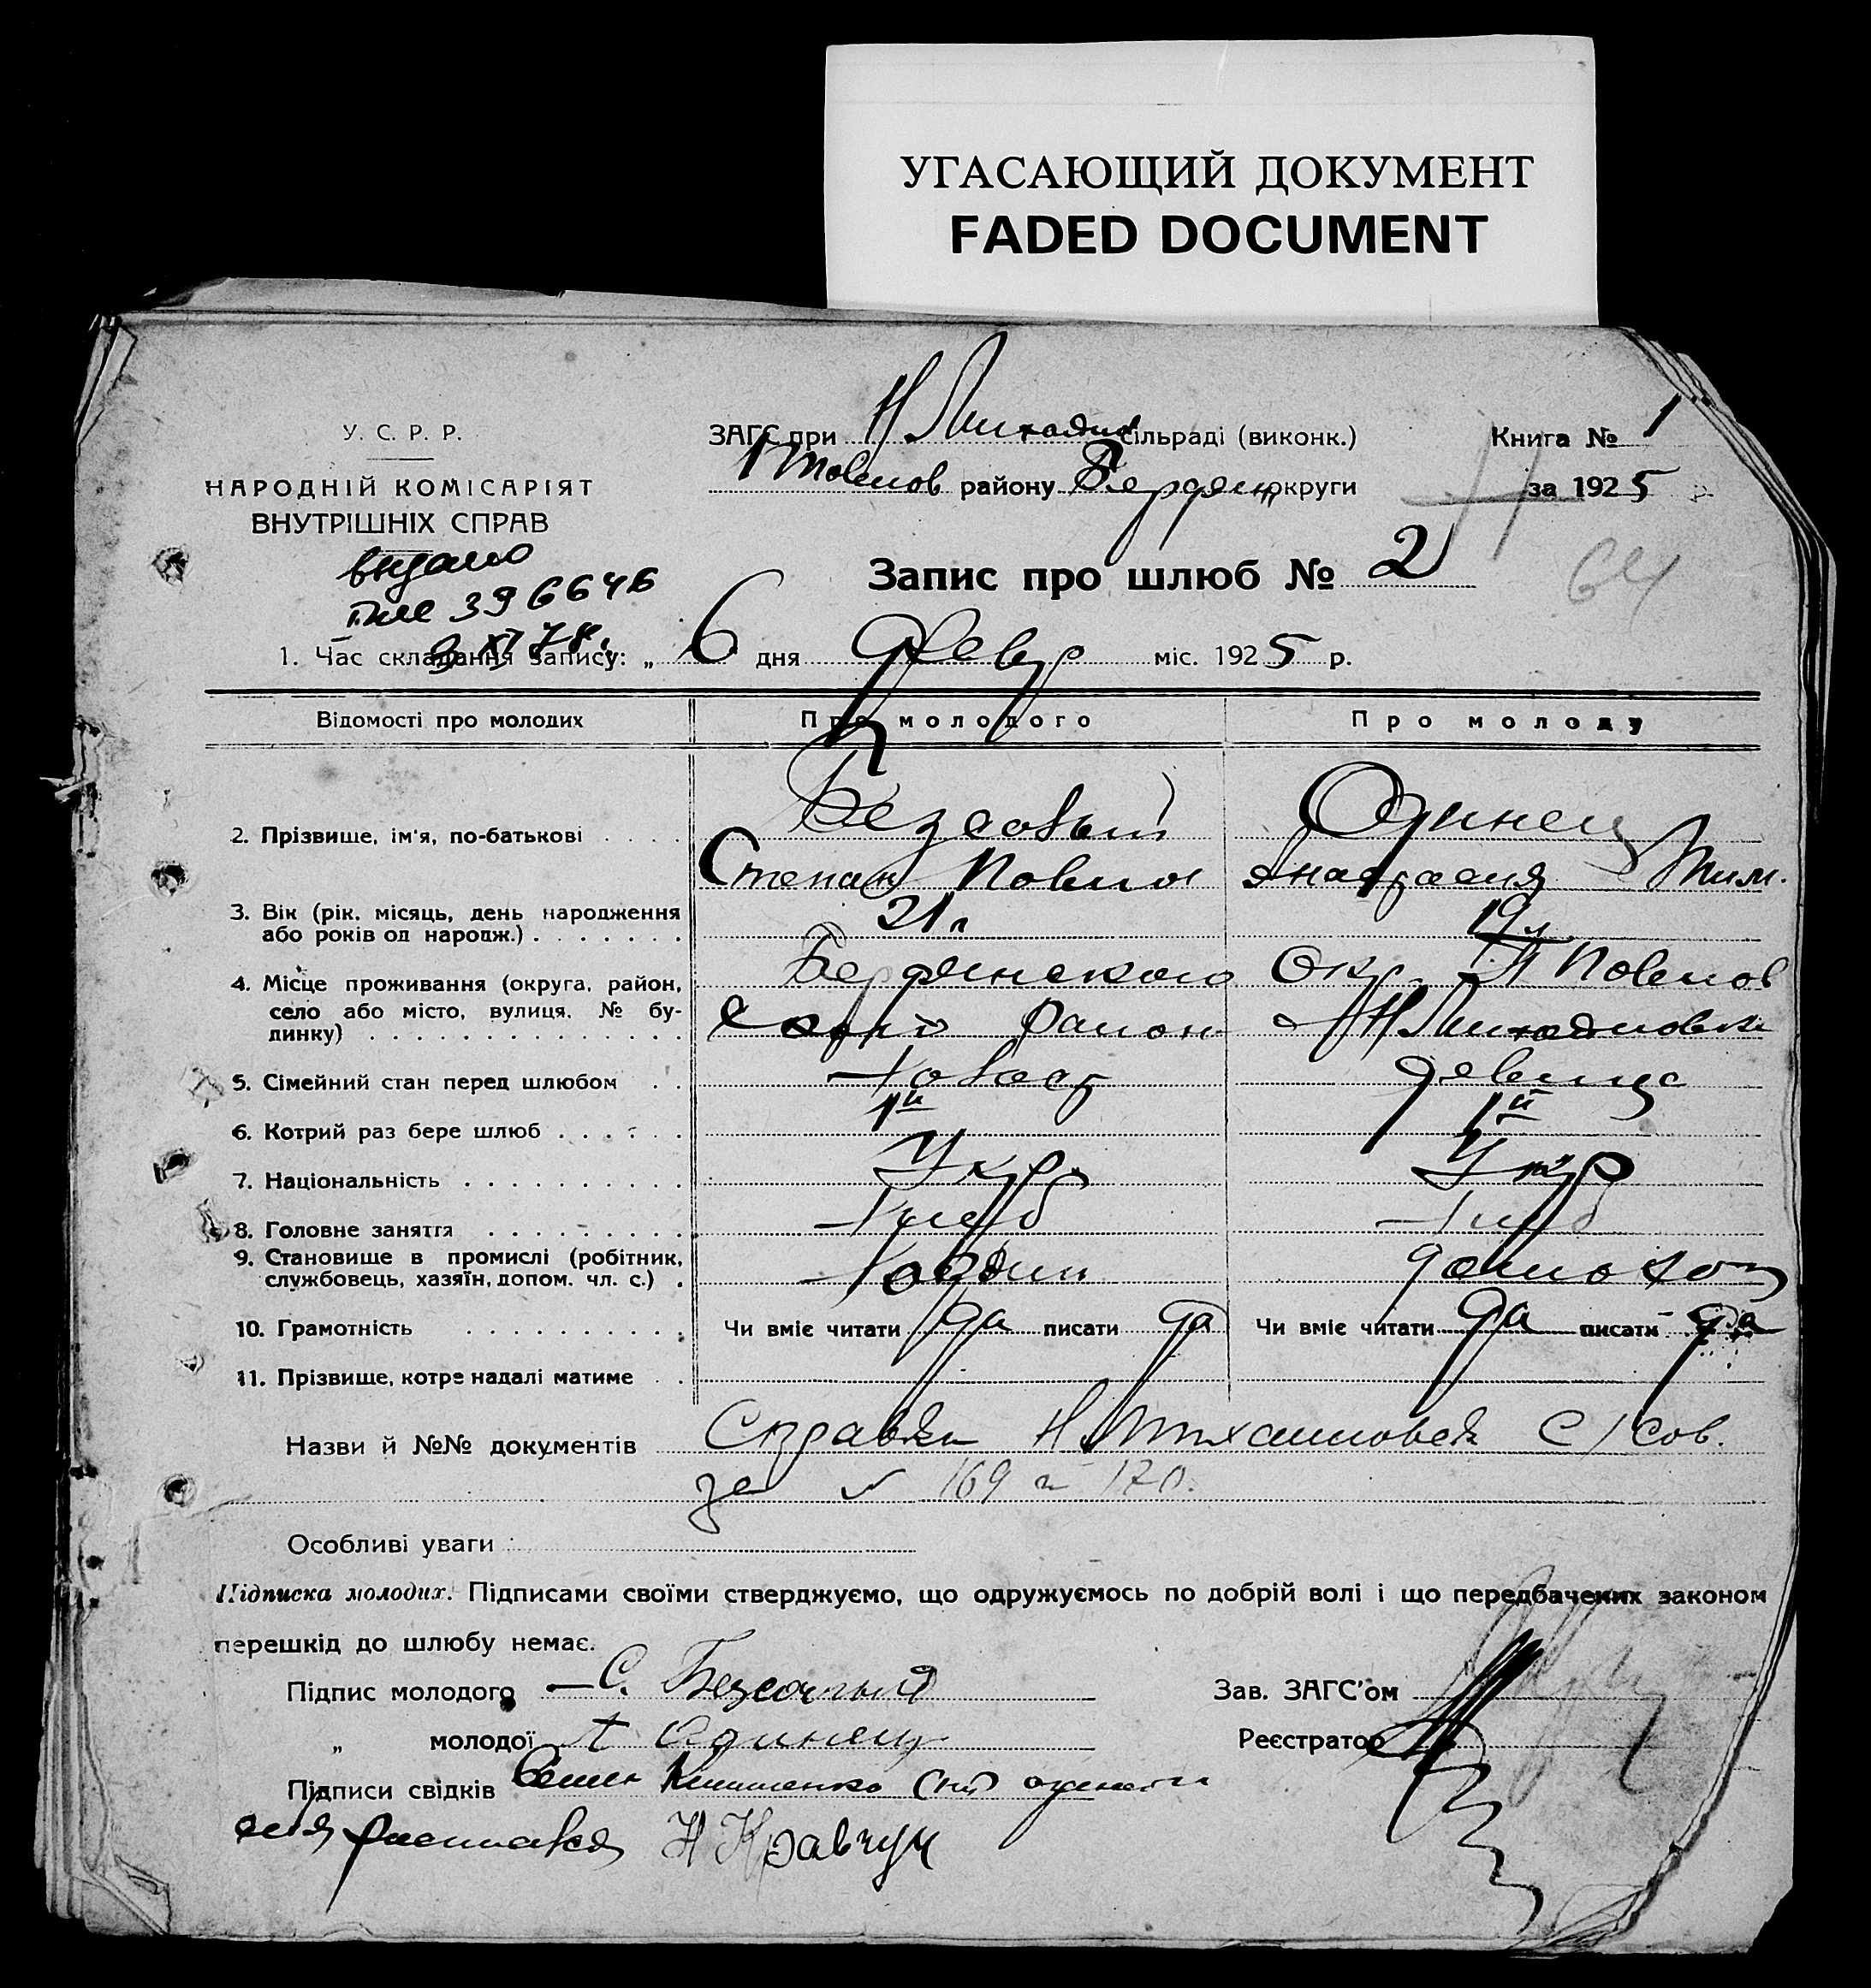 УГАСАЮЩИЙ ДОКУМЕНТ
FADED DOCUMENT
У. С. Р. Р.
НАРОДНІЙ КОМІСАРІЯТ
ВНУТРІШНІХ СПРАВ
ЗАГС при Н сільраді (виконк.)
району Бердян округи
Книга № 1
за 1925 р.
64
396646
Запис про шлюб № 2
1. Час складання запису: „ 6 дня Февр міс. 1925 р.
Відомості про молодих
Про молодого
Про молоду
2. Прізвище, ім'я, по-батькові
Степан
Одинец
Анастасия Тим.
3. Вік (рік, місяць, день народження
або років од народж.)
21 л
19 л
4. Місце проживання (округа, район,
село або місто, вулиця, № бу-
динку)
Бердянского Окр.
район
5. Сімейний стан перед шлюбом
Холост
девица
6. Котрий раз бере шлюб
1й
1й
7. Національність
Укр.
Укр
8. Головне заняття
Хлеб
Хлеб
9. Становище в промислі (робітник,
службовець, хазяїн, допом. чл. с.)
домохоз
10. Грамотність
Чи вміє читати да писати да
Чи вміє читати да писати да
11. Прізвище, котре надалі матиме
Назви й №№ документів Справки Н. Михайловск С/Сов.
за № 169 и 170.
Особливі уваги
Підписка молодих. Підписами своїми стверджуємо, що одружуємось по добрій волі і що передбачених законом
перешкід до шлюбу немає.
Підпис молодого С.
„ молодої А Одинец
Підписи свідків
Н Кравчун
Зав. ЗАГС'ом
Реєстратор